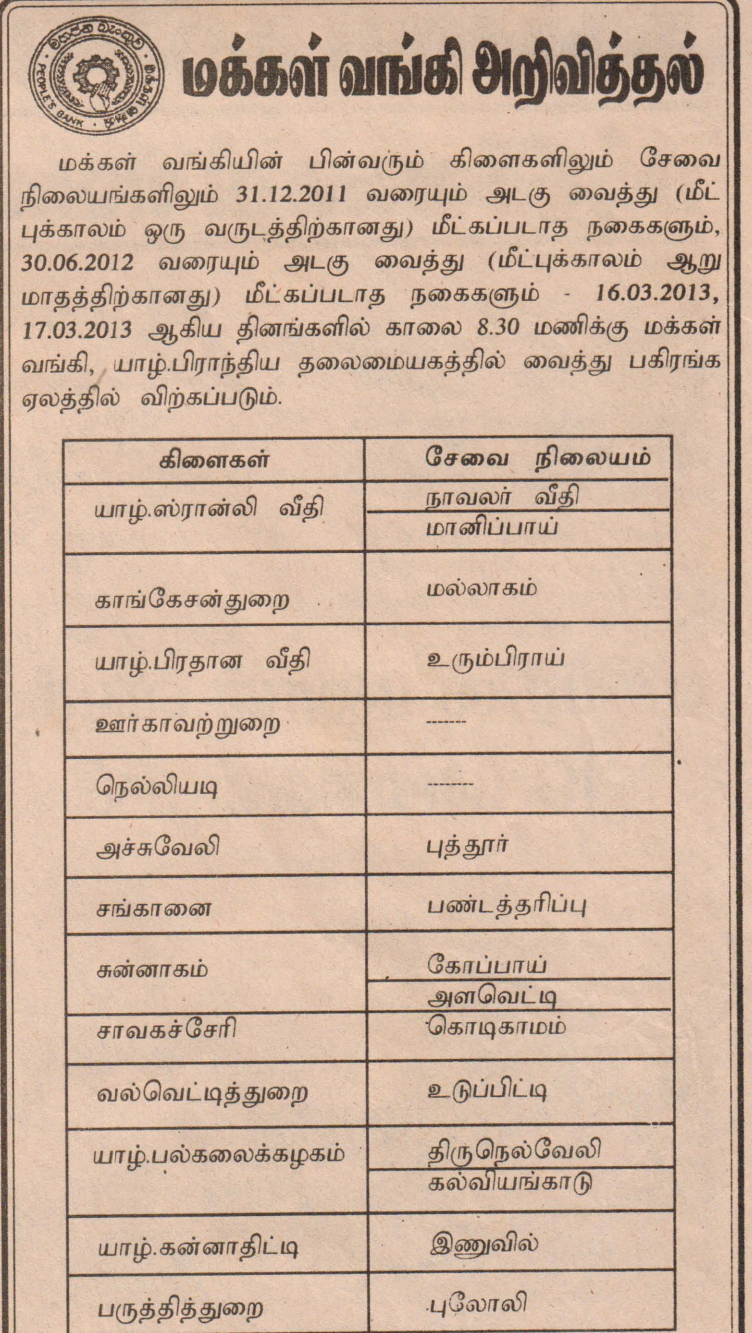 මහජන බැංකුව
PEOPLE'S BANK
மக்கள் வங்கி அறிவித்தல்
மக்கள் வங்கியின் பின்வரும் கிளைகளிலும் சேவை
நிலையங்களிலும் 31.12.2011 வரையும் அடகு வைத்து (மீட்
புக்காலம் ஒரு வருடத்திற்கானது) மீட்கப்படாத நகைகளும்,
30.06.2012 வரையும் அடகு வைத்து (மீட்புக்காலம் ஆறு
மாதத்திற்கானது) மீட்கப்படாத நகைகளும் - 16.03.2013,
17.03.2013 ஆகிய தினங்களில் காலை 8.30 மணிக்கு மக்கள்
வங்கி, யாழ்.பிராந்திய தலைமையகத்தில் வைத்து பகிரங்க
ஏலத்தில் விற்கப்படும்.
கிளைகள் சேவை நிலையம்
யாழ்.ஸ்ரான்லி வீதி நாவலர் வீதி
மானிப்பாய்
காங்கேசன்துறை மல்லாகம்
யாழ்.பிரதான வீதி உரும்பிராய்
ஊர்காவற்றுறை -------
நெல்லியடி --------
அச்சுவேலி புத்தூர்
சங்கானை பண்டத்தரிப்பு
சுன்னாகம் கோப்பாய்
அளவெட்டி
சாவகச்சேரி கொடிகாமம்
வல்வெட்டித்துறை உடுப்பிட்டி
யாழ்.பல்கலைக்கழகம் திருநெல்வேலி
கல்வியங்காடு
யாழ்.கன்னாதிட்டி இணுவில்
பருத்தித்துறை புலோலி